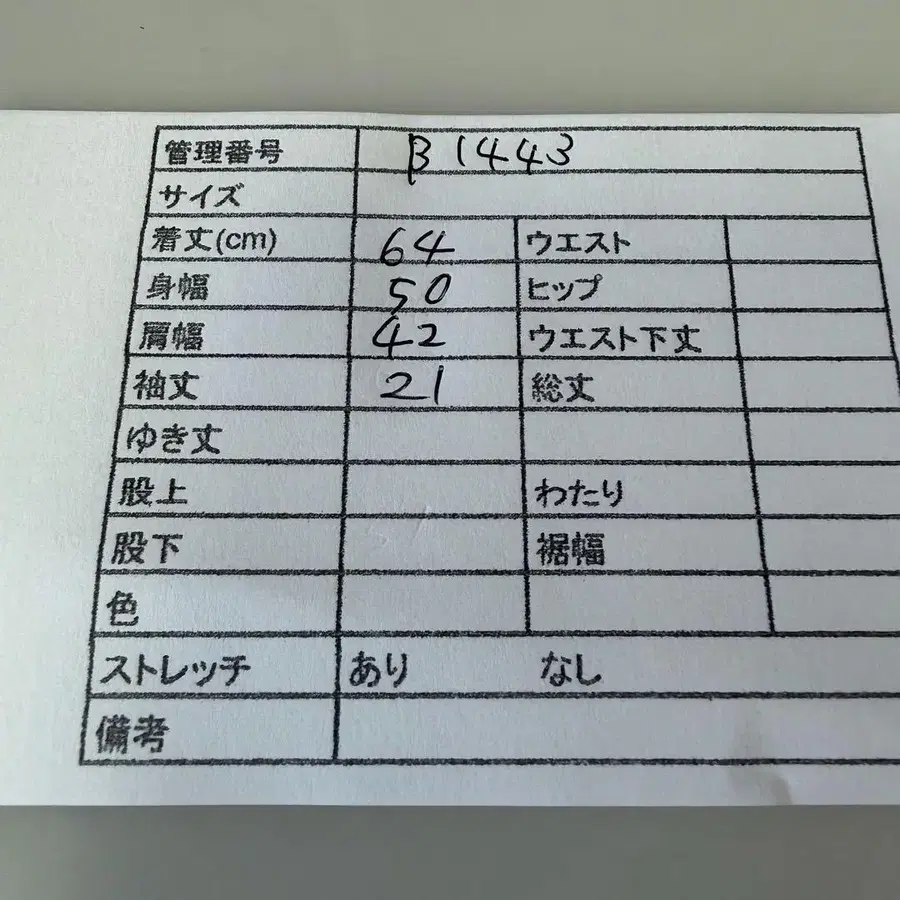 管理番号 B1443
サイズ
着丈(cm) 64 ウエスト
身幅 50 ヒップ
肩幅 42 ウエスト下丈
袖丈 21 総丈
ゆき丈
股上 わたり
股下 裾幅
色
ストレッチ あり なし
備考